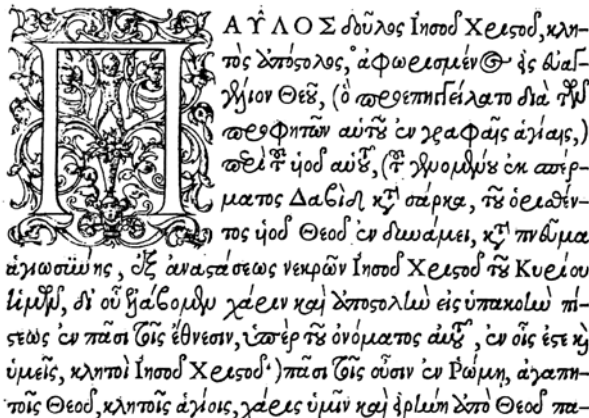 ΠΑΥΛΟΣ δοῦλος Ἰησοῦ Χριστοῦ, κλη-
τὸς ἀπόστολος, ἀφωρισμένος εἰς εὐαγ-
γέλιον Θεοῦ, (ὃ προεπηγγείλατο διὰ τῶν
προφητῶν αὐτοῦ ἐν γραφαῖς ἁγίαις,)
περὶ τοῦ υἱοῦ αὐτοῦ, (τοῦ γενομένου ἐκ σπέρ-
ματος Δαβὶδ κατὰ σάρκα, τοῦ ὁρισθέν-
τος υἱοῦ Θεοῦ ἐν δυνάμει, κατὰ πνεῦμα
ἁγιωσύνης, ἐξ ἀναστάσεως νεκρῶν Ἰησοῦ Χριστοῦ τοῦ Κυρίου
ἡμῶν, δι' οὗ ἐλάβομεν χάριν καὶ ἀποστολὴν εἰς ὑπακοὴν πί-
στεως ἐν πᾶσι τοῖς ἔθνεσιν, ὑπὲρ τοῦ ὀνόματος αὐτοῦ, ἐν οἷς ἐστε καὶ
ὑμεῖς, κλητοὶ Ἰησοῦ Χριστοῦ·) πᾶσι τοῖς οὖσιν ἐν Ῥώμῃ, ἀγαπη-
τοῖς Θεοῦ, κλητοῖς ἁγίοις, χάρις ὑμῖν καὶ εἰρήνη ἀπὸ Θεοῦ πα-